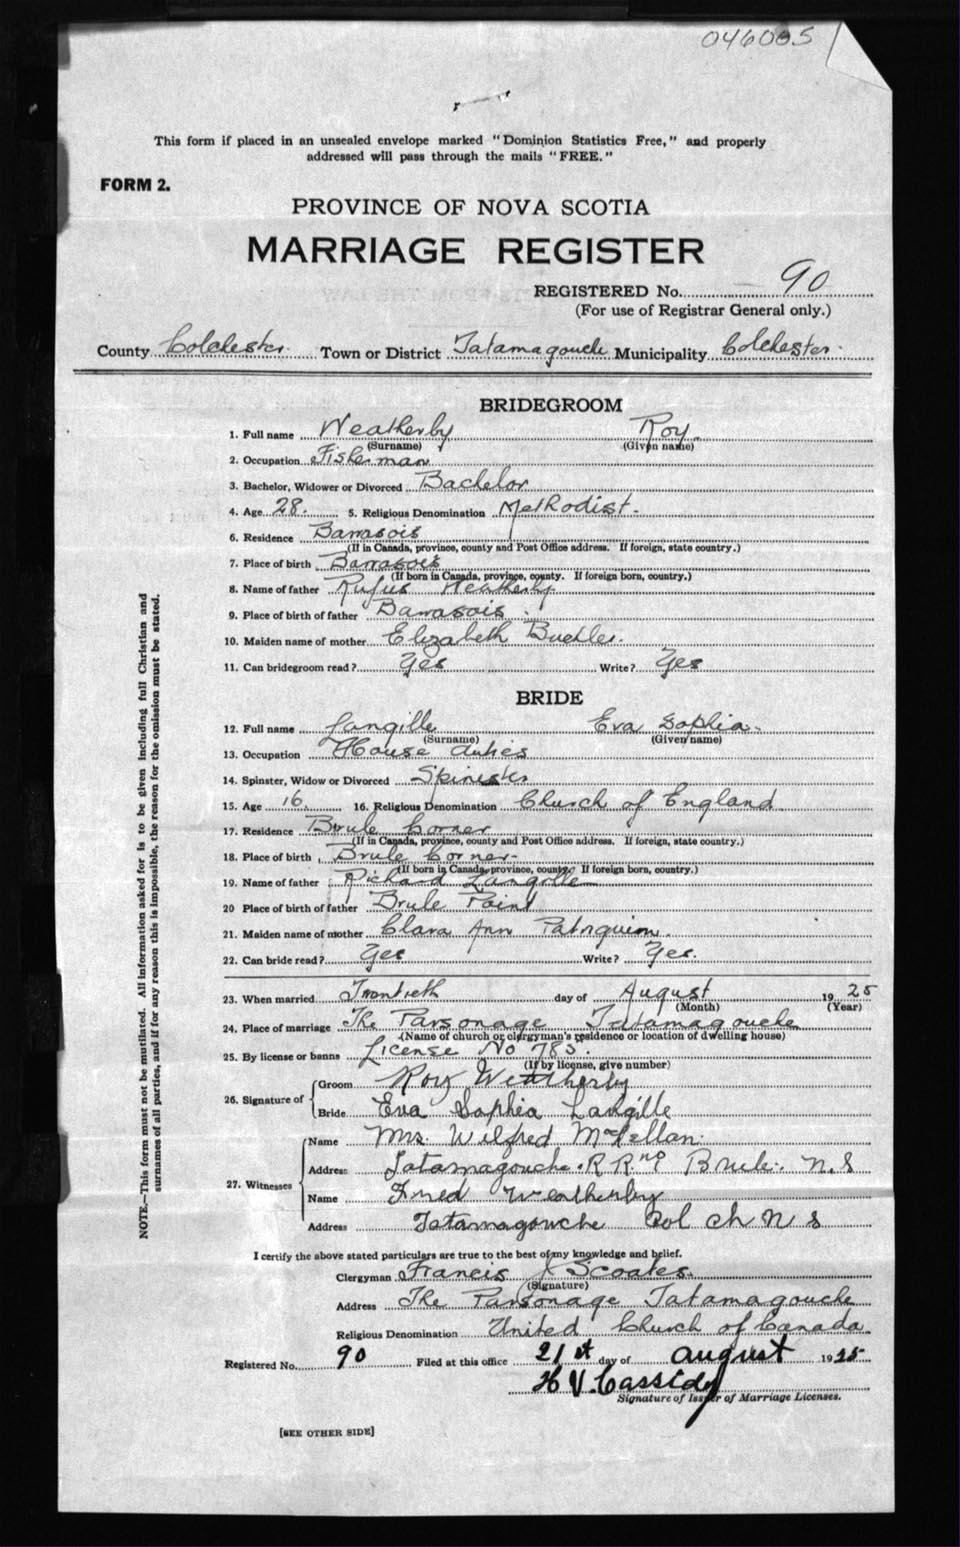 046005
This form if placed in an unsealed envelope marked "Dominion Statistics Free," and properly
addressed will pass through the mails "FREE."
FORM 2.
PROVINCE OF NOVA SCOTIA
MARRIAGE REGISTER
REGISTERED No. 90
(For use of Registrar General only.)
County Colchester. Town or District Tatamagouche Municipality Colchester.
BRIDEGROOM
1. Full name Weatherby Roy.
(Surname) (Given name)
2. Occupation Fisherman
3. Bachelor, Widower or Divorced Bachelor
4. Age 28. 5. Religious Denomination Methodist.
6. Residence Barrasois
(If in Canada, province, county and Post Office address. If foreign, state country.)
7. Place of birth Barrasois
(If born in Canada, province, county. If foreign born, country.)
8. Name of father Rufus Weatherby.
9. Place of birth of father Barrasois.
10. Maiden name of mother Elizabeth
11. Can bridegroom read? Yes Write? Yes
BRIDE
12. Full name Langille Eva Sophia.
(Surname) (Given name)
13. Occupation House duties
14. Spinster, Widow or Divorced Spinster
15. Age 16. 16. Religious Denomination Church of England
17. Residence Brule Corner
(If in Canada, province, county and Post Office address. If foreign, state country.)
18. Place of birth Brule Corner
(If born in Canada, province, county. If foreign born, country.)
19. Name of father Richard Langille
20 Place of birth of father Brule Point
21. Maiden name of mother Clara Ann
22. Can bride read? Yes Write? Yes.
23. When married day of August 1925
(Month) (Year)
24. Place of marriage The Parsonage Tatamagouche
(Name of church or clergyman's residence or location of dwelling house)
25. By license or banns License No 785.
(If by license, give number)
26. Signature of Groom Roy Weatherby
Bride Eva Sophia Langille
27. Witnesses Name Mrs. Wilfred McLellan.
Address Tatamagouche. R R. no 1 Brule. N.S
Name Fred Weatherby
Address Tatamagouche Col ch N S
I certify the above stated particulars are true to the best of my knowledge and belief.
Clergyman Francis J Scoates.
(Signature)
Address The Parsonage Tatamagouche
Religious Denomination United Church of Canada
Registered No. 90 Filed at this office 21st day of august 1925
H V. Cassidy
Signature of Issuer of Marriage Licenses.
[SEE OTHER SIDE]
NOTE.—This form must not be mutilated. All information asked for is to be given including full Christian and
surnames of all parties, and if for any reason this is impossible, the reason for the omission must be stated.